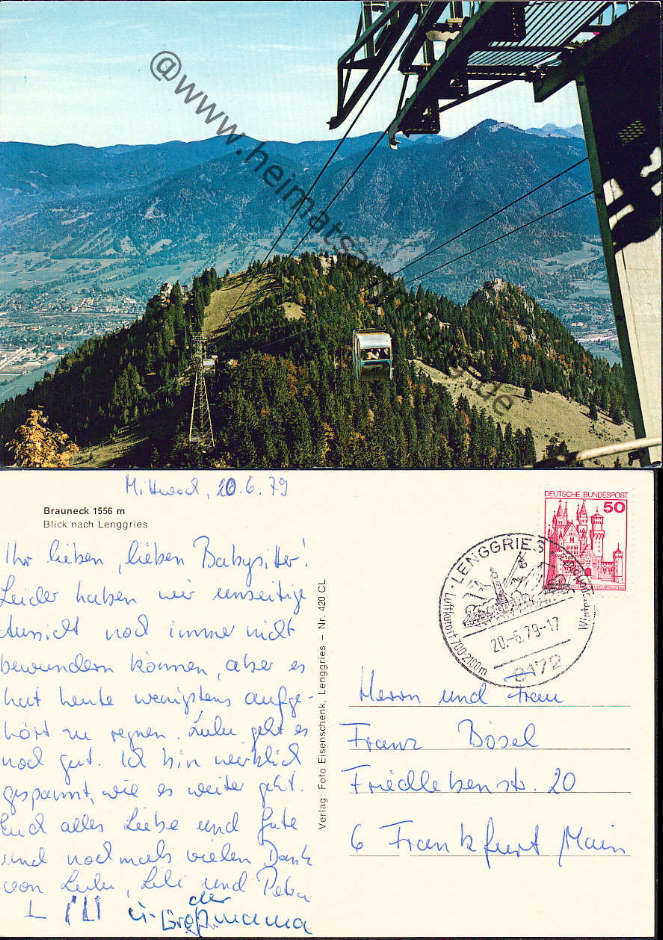 @www.heimatsammlung.de
Mittwoch, 20.6.79
Brauneck 1556 m
Blick nach Lenggries
Ihr lieben, lieben Babysitter!
Leider haben wir umseitige
Aussicht noch immer nicht
bewundern können, aber es
hat heute wenigstens aufge-
hört zu regnen. Lulu geht es
noch gut. Ich bin wirklich
gespannt, wie es weiter geht.
Euch alles Liebe und Gute
und nochmals vielen Dank
von Lulu, Lili und Peter
L Lili u. der
Großmama
Verlag: Foto Eisenschenk, Lenggries – Nr. 420 CL
DEUTSCHE BUNDESPOST
50
LENGGRIES
Luftkurort 700-2100m
20.-6.79-17
8172
Herrn und Frau
Franz Bösel
Friedlebenstr. 20
6 Frankfurt Main